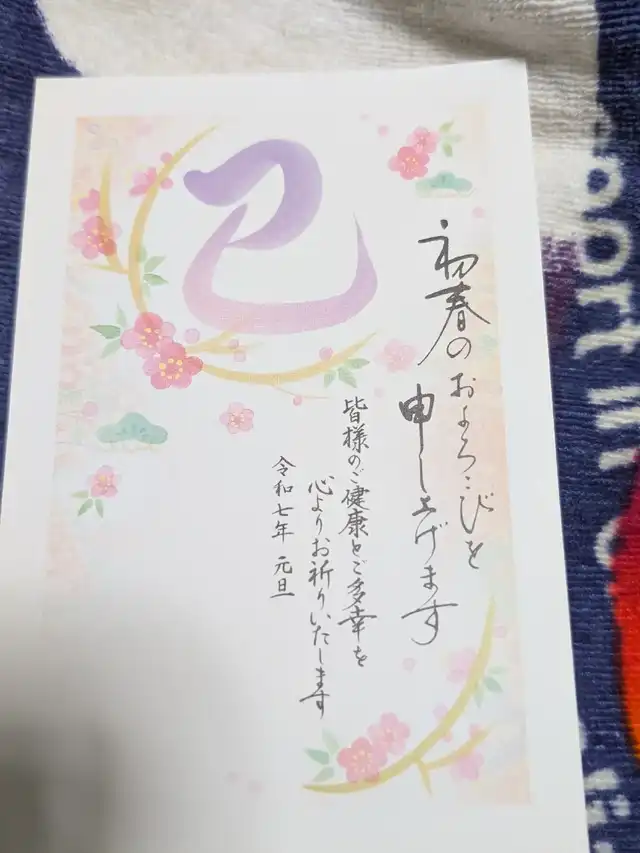 巳
初春のおよろこびを
申し上げます
皆様のご健康とご多幸を
心よりお祈りいたします
令和七年 元旦